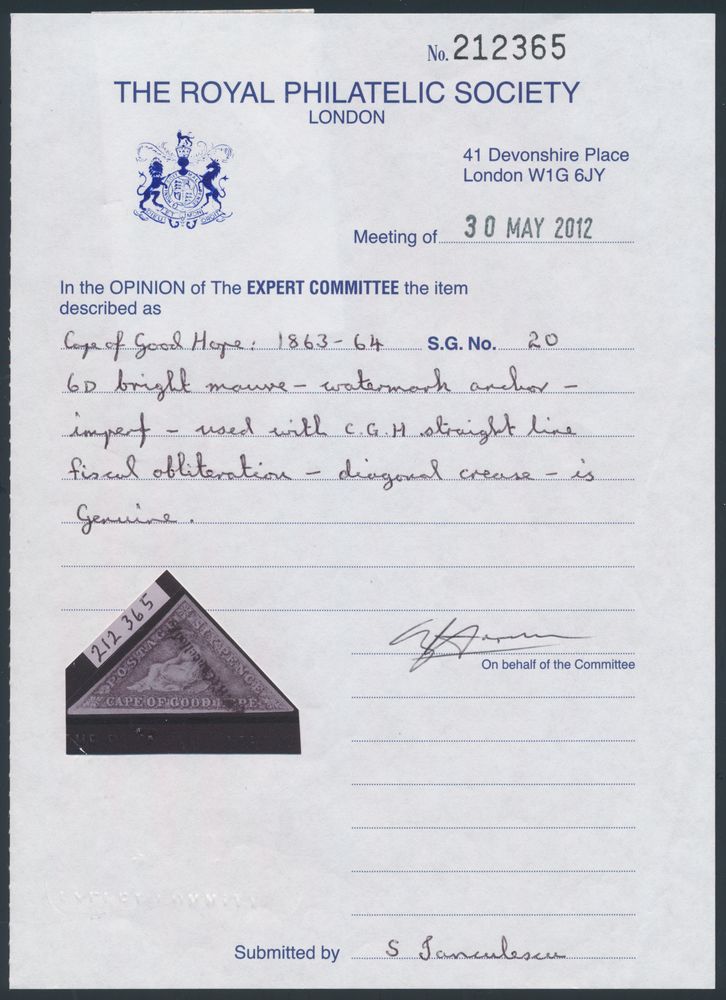 No. 212365
THE ROYAL PHILATELIC SOCIETY
LONDON
41 Devonshire Place
London W1G 6JY
Meeting of 30 MAY 2012
In the OPINION of The EXPERT COMMITTEE the item
described as
Cape of Good Hope: 1863-64 S.G. No. 20
6D bright mauve - watermark anchor -
imperf - used with C.G.H straight line
fiscal obliteration - diagonal crease - is
Genuine.
212 365
POSTAGE SIXPENCE
CAPE OF GOOD HOPE
On behalf of the Committee
Submitted by S Ianculescu